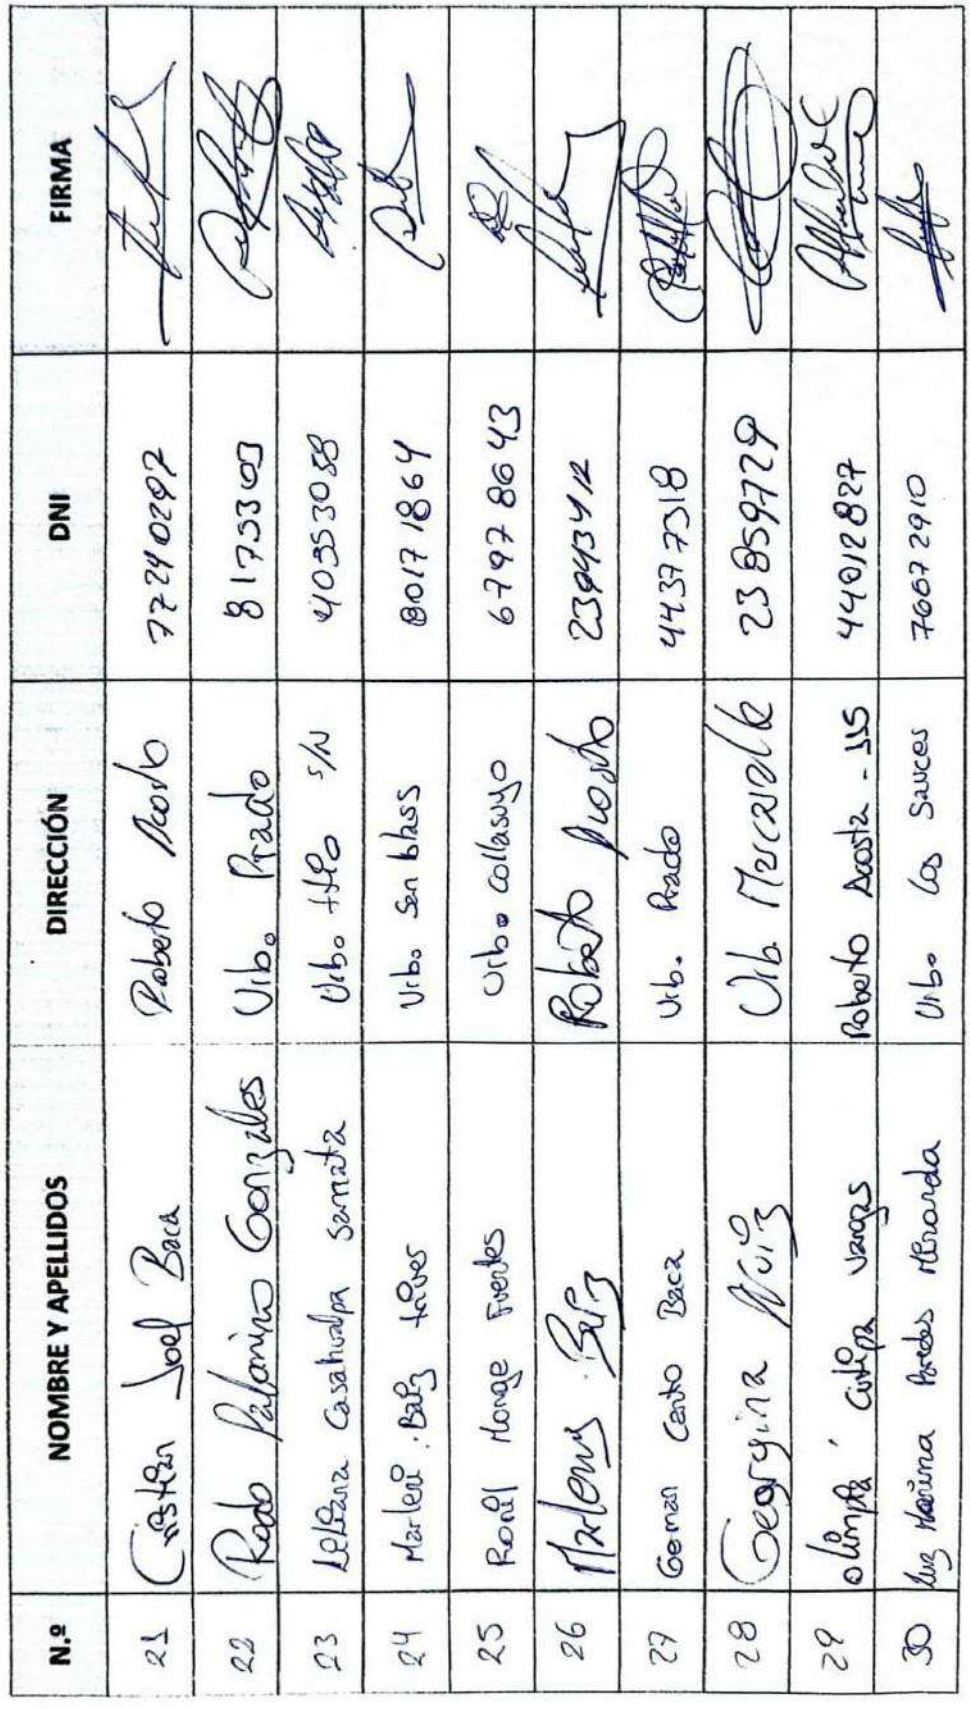 N.º NOMBRE Y APELLIDOS DIRECCIÓN DNI FIRMA
21 Cristian Joel Baca Roberto Acosto 77240297
22 Rado Palomino Gonzales Urb. Prado 8173303
23 Casahualpa Samata Urb. s/N 40353038
24 Marleni Baiz Urb. San blass 80171864
25 Raonil Monge Fuentes Urb. Collasuyo 67978643
26 Marleny Baiz Roberto Acosto 23943412
27 German Canto Baca Urb. Prado 44377318
28 Georgina Urb. Marcavalle 23859729
29 olimpia Cutipa Vargas Roberto Acosta - 355 44012827
30 Luz Marina Paredes Miranda Urb. Los Sauces 76672910